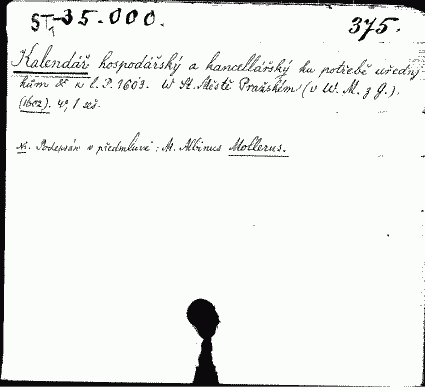 ST 35.000.
375.
Kalendář hospodářský a kancellářský ku potřebě úředny-
kům &c k l. P. 1603. W St. Městě Pražském (u W. M. z G.).
(1602). 4°, 1 seš.
N. Podepsán v předmluvě: M. Albinus Mollerus.